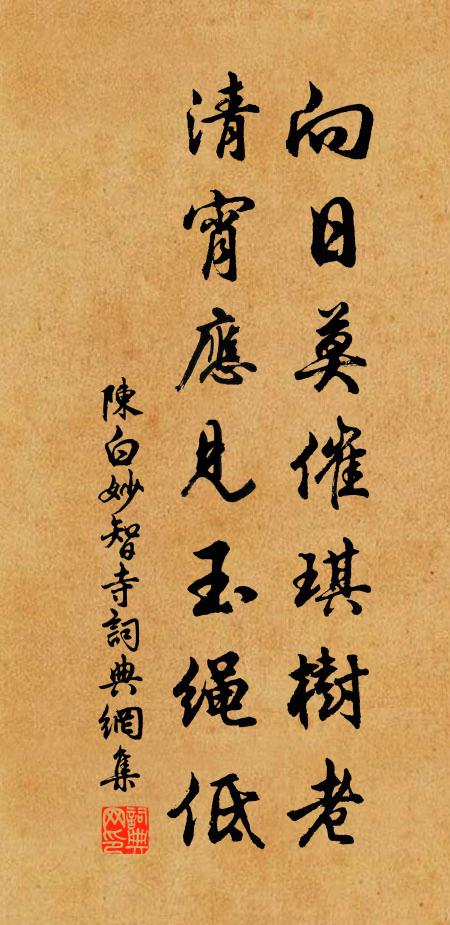 向日莫催琪樹老
清宵應見玉绳低
陳白妙智寺詞典網集
詞典网印